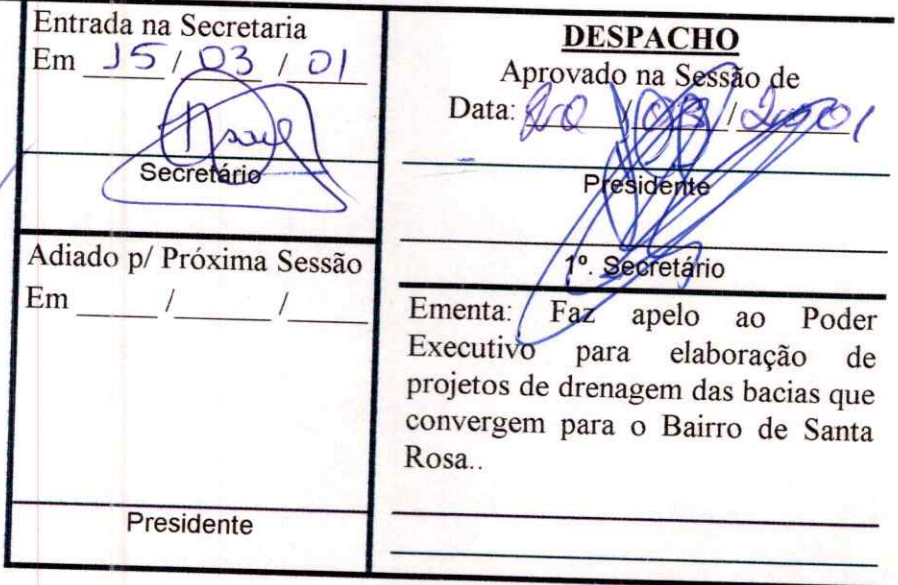 Entrada na Secretaria
Em 15 / 03 / 01
Secretário
Adiado p/ Próxima Sessão
Em _____ /______ /______
Presidente
DESPACHO
Aprovado na Sessão de
Data: 20 / 03 / 2001
Presidente
1º. Secretário
Ementa: Faz apelo ao Poder
Executivo para elaboração de
projetos de drenagem das bacias que
convergem para o Bairro de Santa
Rosa..